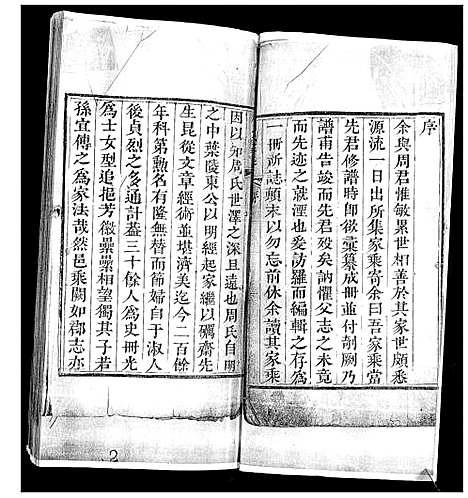 序
余與周君惟敏累世相善於其家世頗悉
源流一日出所集家乘寄余曰吾家乘當
先君修譜時即欲彙纂成冊並付剞劂乃
譜甫告竣而先君殁矣訥懼父志之未竟
而先迹之就湮也爰蒐羅而編輯之存為
一冊祈誌顛末以勿忘前休余讀其家乘
因以知周氏世澤之深且遠也周氏自明
之中葉陵東公以明經起家繼以礪齋先
生昆從文章經術並堪濟美迄今二百餘
年科第勲名有隆無替而節婦自于淑人
後貞烈之多通計葢三十餘人為史冊光
為士女型追挹芳徽纍纍相望獨其子若
孫宣傳之為家法哉然邑乘闕如郡志亦
2